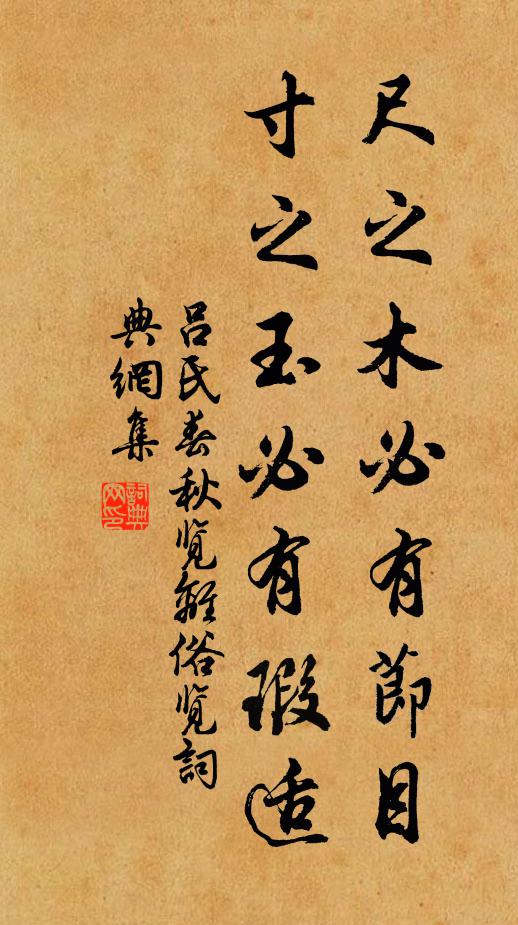 尺之木必有節目
寸之玉必有瑕适
吕氏春秋览離俗览詞
典網集
詞典
网印